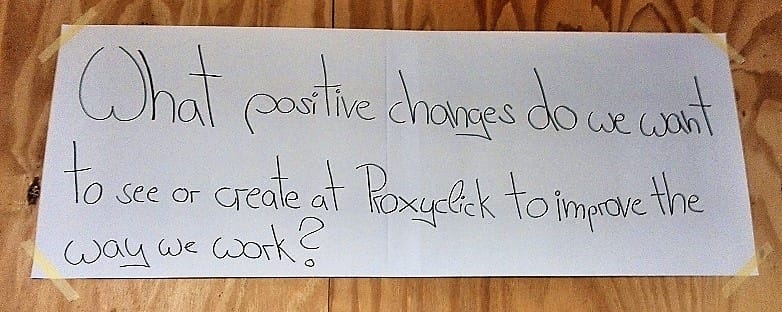 What positive changes do we want
to see or create at Proxyclick to improve the
way we work?